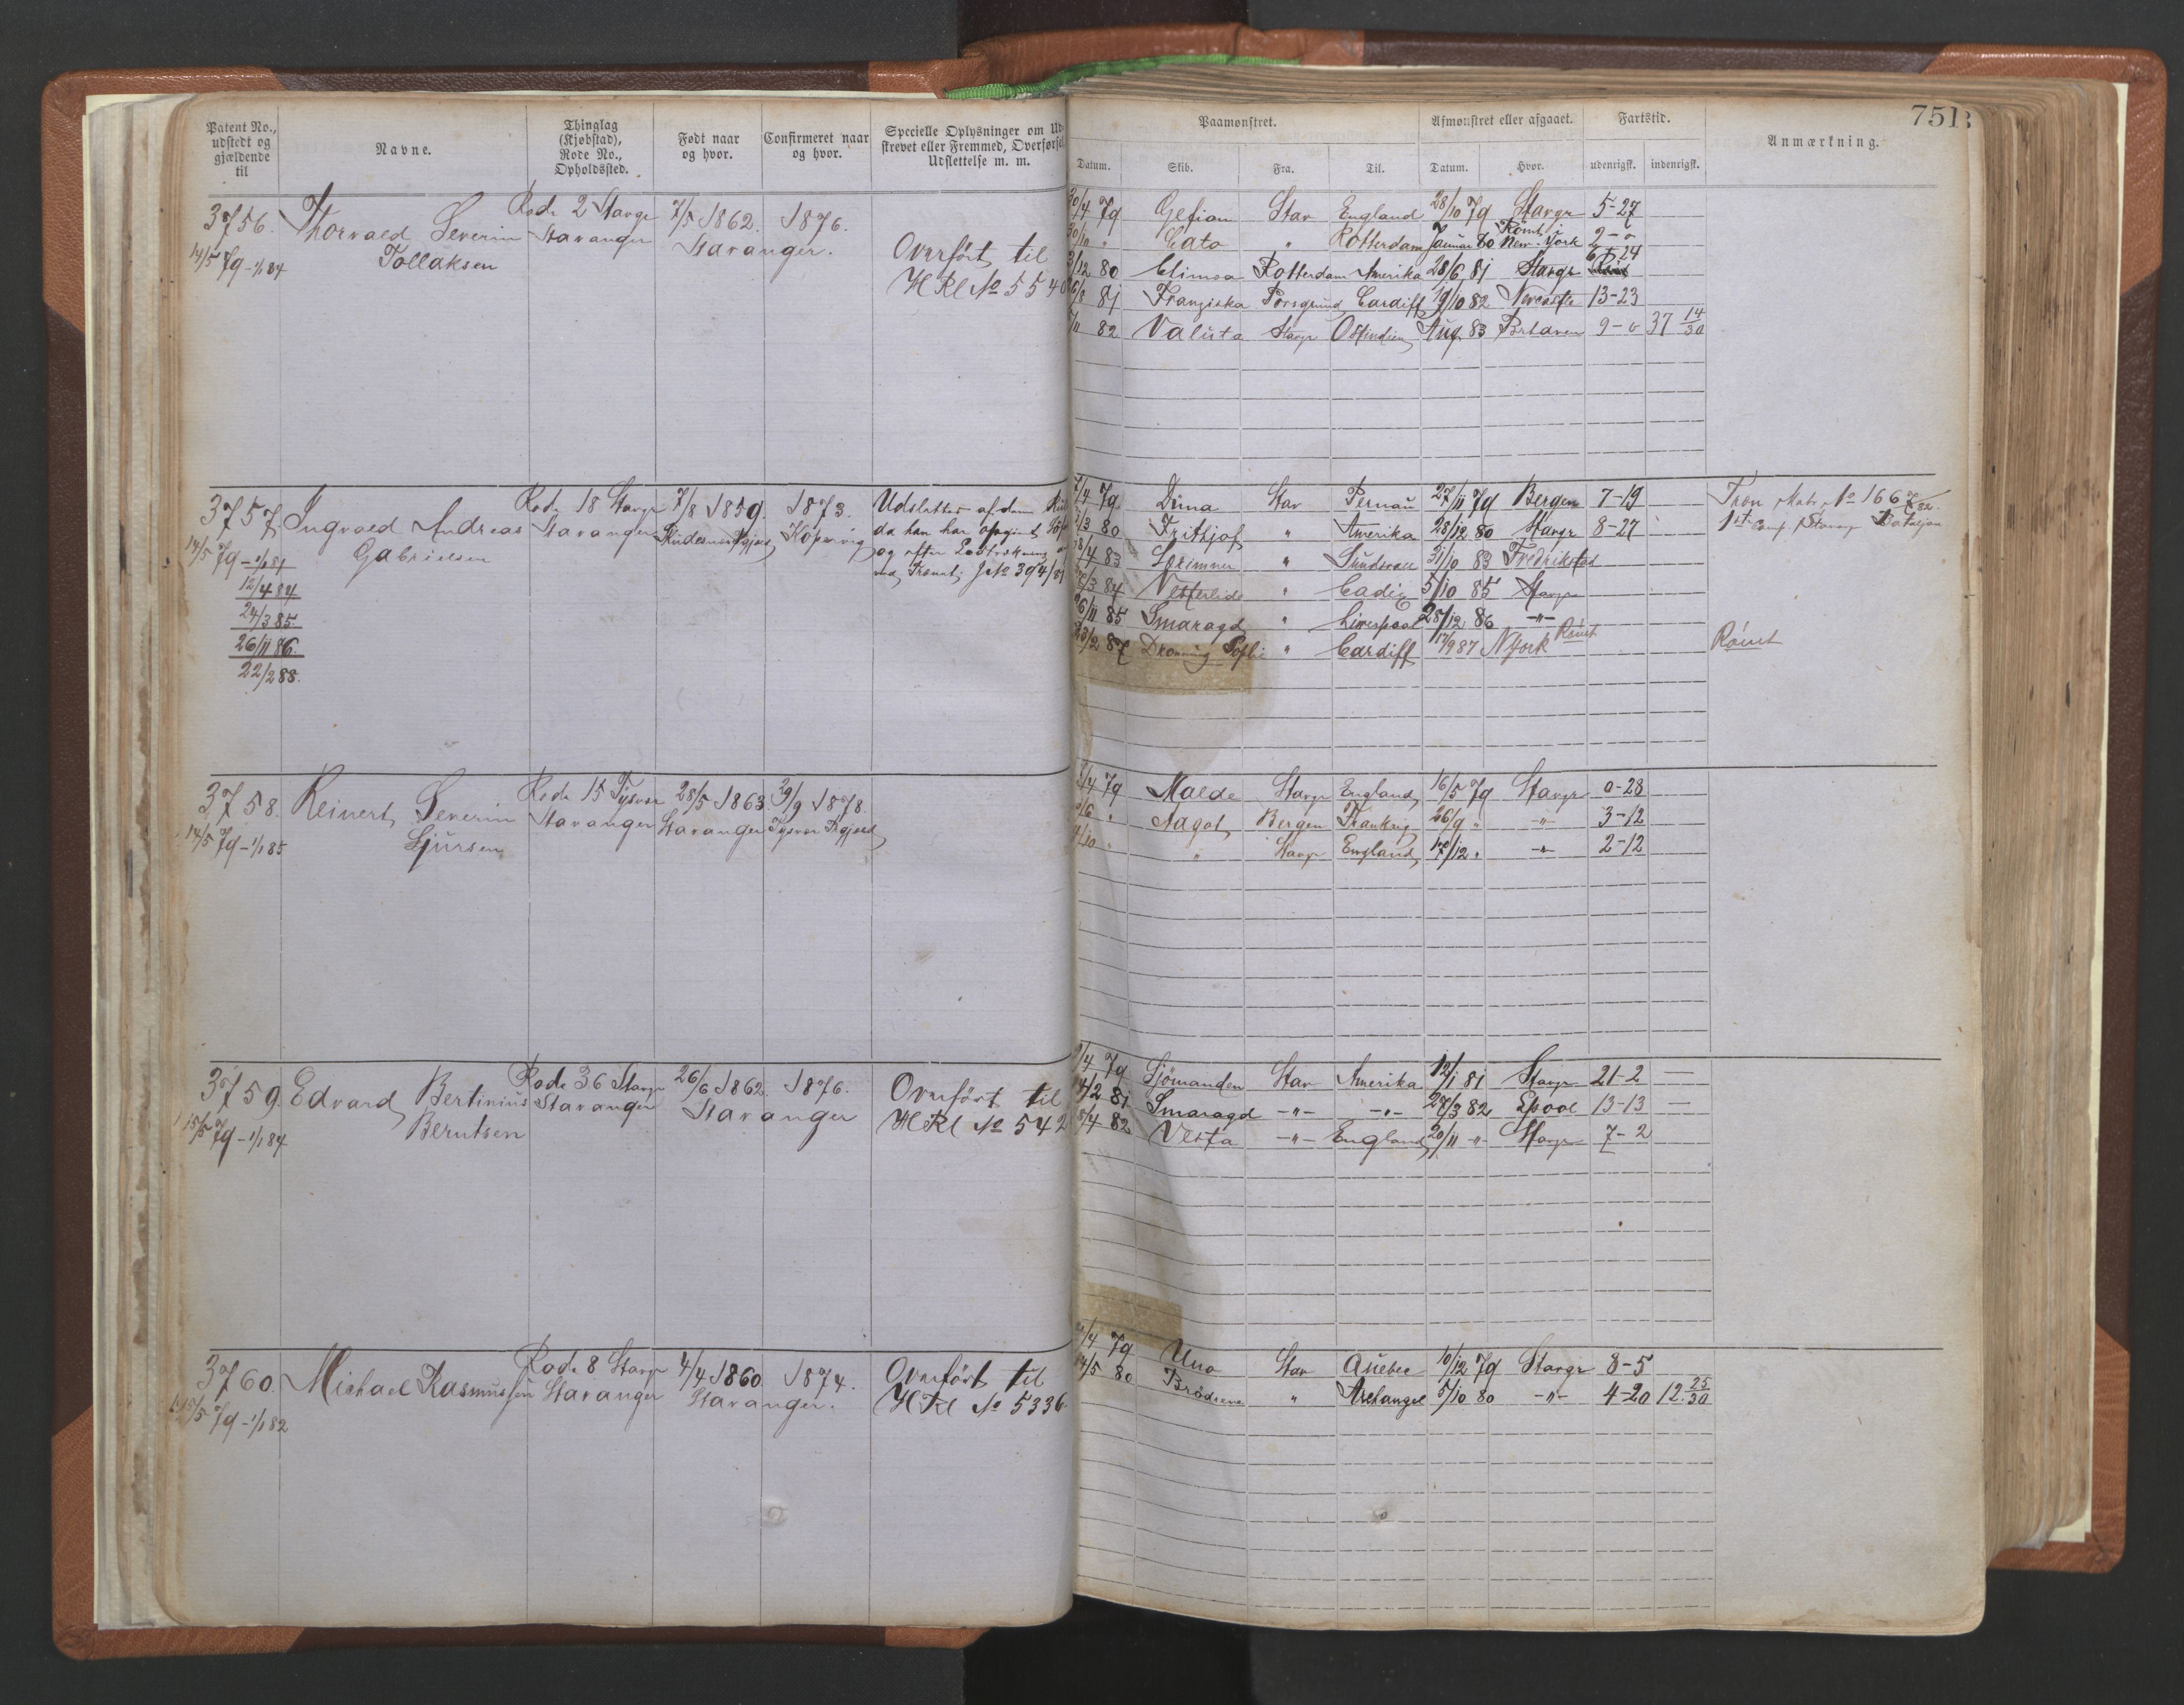 Patent No., udstedt og gjældende til
Navne.
Thinglag (Kjøbstad), Rode No., Opholdssted.
Født naar og hvor.
Confirmeret naar og hvor.
Specielle Oplysninger om Ud-
skrevet eller Fremmed, Overførsel
Udslettelse m. m.
3756.
14/5 79 - 1/1 84
Thorvald Severin
Tollaksen
Rode 2 Stavgr
Stavanger
7/5 1862.
Stavanger.
1876.
Overført til
HRl No 5540
3757,
14/5 79 - 1/1 81
12/4 84
24/3 85.
26/11 86.
22/2 88.
Ingvald Andreas
Gabrielsen
Rode 18 Stavgr
Stavanger
7/8 1859.
1873.
Kopervig
Udslettes af den
da han har opgivet
og efter
3758.
14/5 79 - 1/1 85
Reinert Severin
Sjursen
Rode 15 Tysvær
Stavanger
28/5 1863.
Stavanger
29/9 1878.
Tysvær Prgjeld
3759.
15/5 79 - 1/1 84
Edvard Bertinius
Berntsen
Rode 36 Stavgr
Stavanger
26/6 1862.
1876.
Stavanger
Overført til
HRl No 542
3760.
15/5 79 - 1/1 82
Michael Rasmussen
Rode 8 Stavgr
Stavanger
4/4 1860.
1874.
Stavanger.
Overført til
HRl No 5336.
751
Paamønstret.
Afmønstret eller afgaaet.
Fartstid.
Anmærkning.
Datum. Skib. Fra. Til. Datum. Hvor. udenrigsk. indenrigsk.
30/4 79 Gefion Stav England 28/10 79 Stavgr 5-27
30/10 " Cato " Rotterdam Januar 80 Rømt i New-York 2-0
3/12 80 Rotterdam Amerika 28/6 81 Stavgr 6-24
81 Franziska Porsgrund Cardiff 19/10 82 13-23
82 Valuta Stavgr Ostindien Aug. 83 9-0 37 14/30
79 Dina Stav Pernau 27/11 79 Bergen 7-19
80 Fritjof " Amerika 28/12 80 Stavgr 8-27
83 " Sundsvall 31/10 83 Fredrikstad
84 Vesterlide " Cadiz 5/10 85 Stavgr
26/11 85 Smaragd " Liverpool 28/12 86 -"-
23/2 87 Dronning Sofie " Cardiff 17/9 87 NYork Rømt
No 1667/82.
1st Comp. Stavang Bataljon
Rømt
79 Malde Stavgr England 16/5 79 Stavgr 0-28
" Aagot Bergen Frankrig 26/9 " -"- 3-12
" " Stavgr England 17/12 " -"- 2-12
79 Sjømanden Stav Amerika 12/1 81 Stavgr 21-2 —
14/2 81 Smaragd -"- -"- 27/3 82 Lpool 13-13 —
82 Vesta -"- England 20/11 -"- Stavgr 7-2
79 Uno Stav Quebec 10/12 79 Stavgr 8-5
80 Brødrene " Archangel 5/10 80 -"- 4-20 12. 25/30